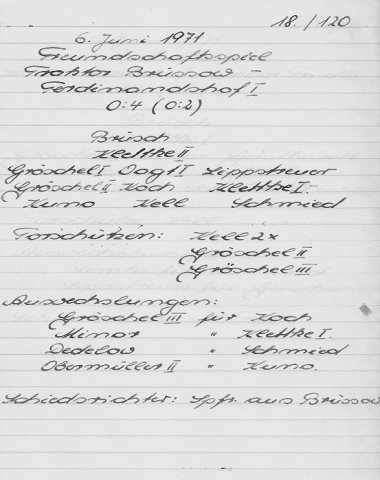 18./120
6. Juni 1971
Freundschaftsspiel
Traktor Brüssow -
Ferdinandshof I
0:4 (0:2)
Brüsch
Klettke II
Gröschel I Vogt I Lippstreuer
Gröschel II Koch Klettke I
Kuno Kell Schmied
Torschützen: Kell 2x
Gröschel II
Gröschel III
Auswechslungen:
Gröschel III für Koch
Minor " Klettke I.
Dedelow " Schmied
Obermüller II " Kuno.
Schiedsrichter: Spfr. aus Brüssow